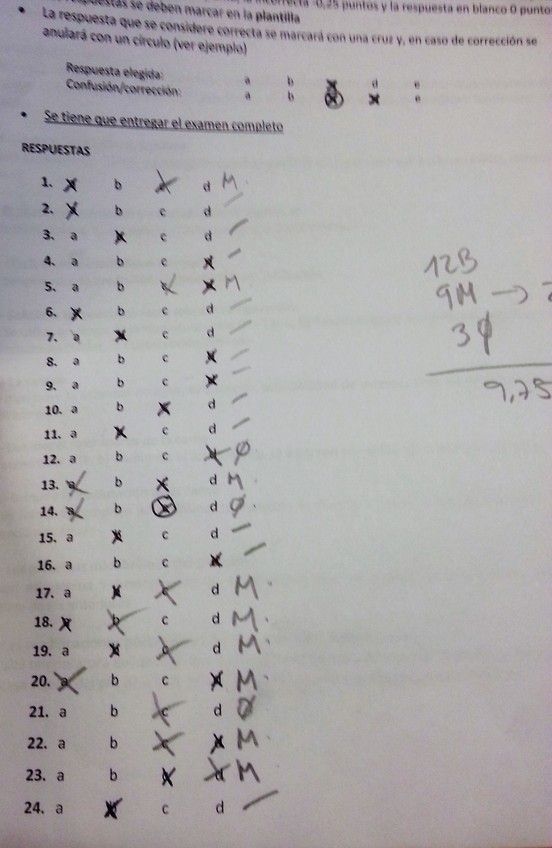 se deben marcar en la plantilla
-0,25 puntos y la respuesta en blanco 0 puntos
• La respuesta que se considere correcta se marcará con una cruz y, en caso de corrección se
anulará con un círculo (ver ejemplo)
Respuesta elegida: a b c d e
Confusión/corrección: a b c d e
• Se tiene que entregar el examen completo
RESPUESTAS
1. a b c d M
2. a b c d
3. a b c d
4. a b c d
5. a b c d M
6. a b c d
7. a b c d
8. a b c d
9. a b c d
10. a b c d
11. a b c d
12. a b c d Ø
13. a b c d M
14. a b c d Ø
15. a b c d
16. a b c d
17. a b c d M
18. a b c d M
19. a b c d M
20. a b c d M
21. a b c d Ø
22. a b c d M
23. a b c d M
24. a b c d
12B
9M →
3Ø
9,75